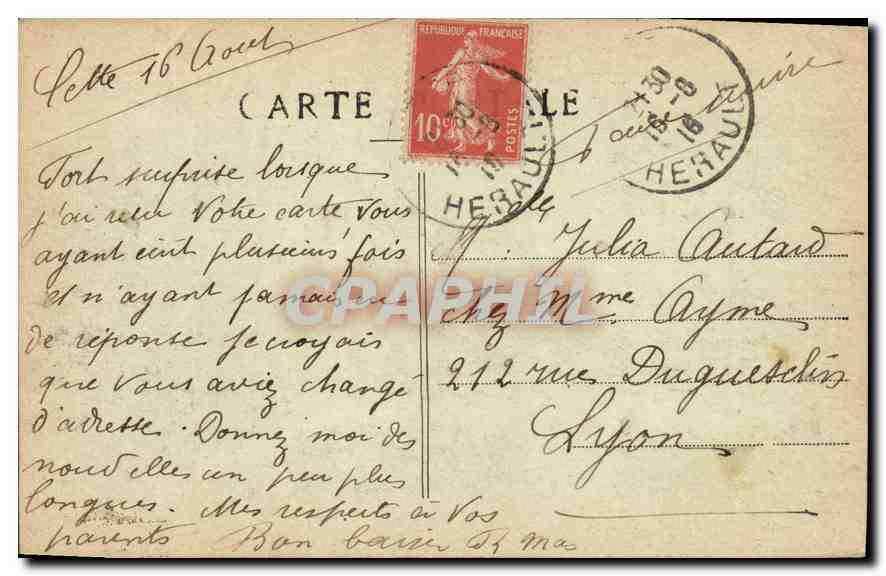 Cette 16 Aout
CARTE POSTALE
REPUBLIQUE FRANÇAISE
10c
POSTES
HERAULT
30
16-8
16
HERAULT
Fort surprise lorsque
j'ai reçu Votre carte Vous
ayant écrit plusieurs fois
et n'ayant jamais eu
de réponse je croyais
que Vous aviez changé
d'adresse. Donnez moi des
nouvelles un peu plus
longues. Mes respects à Vos
parents Bon baiser
Mlle Julia Autard
chez Mme Ayme
212 rue Duguesclin
Lyon
CPAPHIL